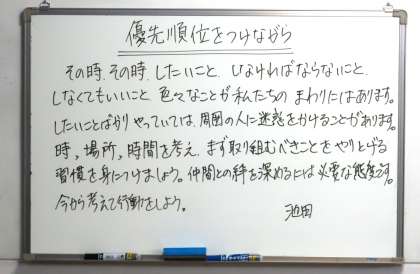 優先順位をつけながら
その時、その時、したいこと、しなければならないこと、
しなくてもいいこと、色々なことが私たちのまわりにはあります。
したいことばかりやっていては、周囲の人に迷惑をかけることがあります。
時，場所，時間を考え、まず取り組むべきことをやりとげる
習慣を身につけましょう。仲間との絆を深めるには必要な態度です。
今から考えて行動をしよう。
池田